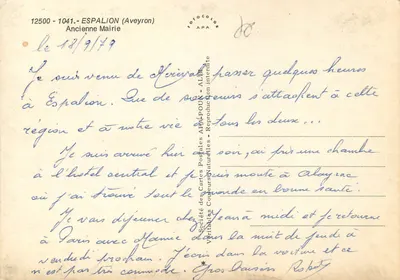 12500 - 1041.- ESPALION (Aveyron)
Ancienne Mairie
le 18/9/79
Je suis venu de passer quelques heures
à Espalion. Que de souvenirs s'attachent à cette
région et à notre vie à tous les deux...
Je suis arrivé hier au soir, ai pris une chambre
à l'hotel central et puis monté à
où j'ai trouvé tout le monde en bonne santé.
Je vais déjeuner chez Jean à midi et je retourne
à Paris avec Mame dans la nuit de jeudi à
vendredi prochain. J'écris dans la voiture et ce
n'est pas très commode. Gros baisers
Société des Cartes Postales APA-POUX - ALBI
Véritables Couleurs Naturelles - Reproduction interdite
APA